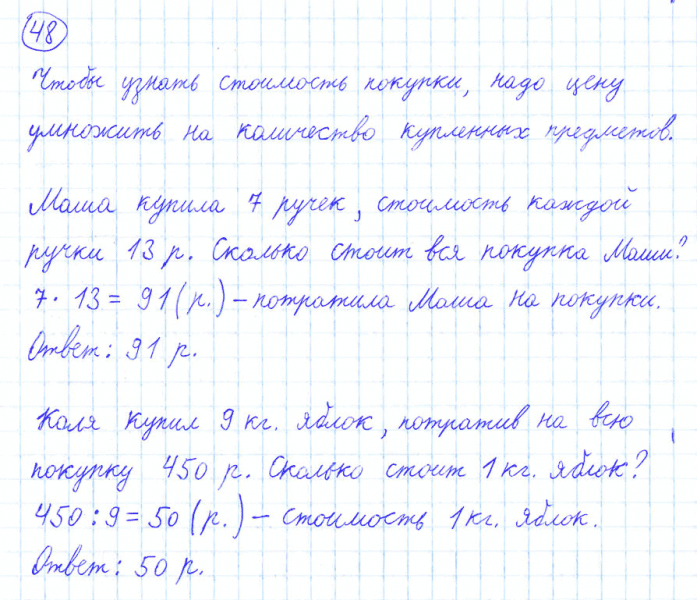 48
Чтобы узнать стоимость покупки, надо цену
умножить на количество купленных предметов.
Маша купила 7 ручек, стоимость каждой
ручки 13 р. Сколько стоит вся покупка Маши?
7 · 13 = 91 (р.) – потратила Маша на покупки.
Ответ: 91 р.
Коля купил 9 кг. яблок, потратив на всю
покупку 450 р. Сколько стоит 1 кг. яблок?
450 : 9 = 50 (р.) – стоимость 1 кг. яблок.
Ответ: 50 р.